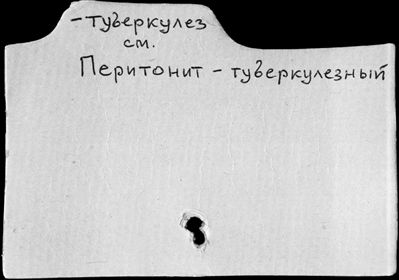 -туберкулез
см.
Перитонит - туберкулезный